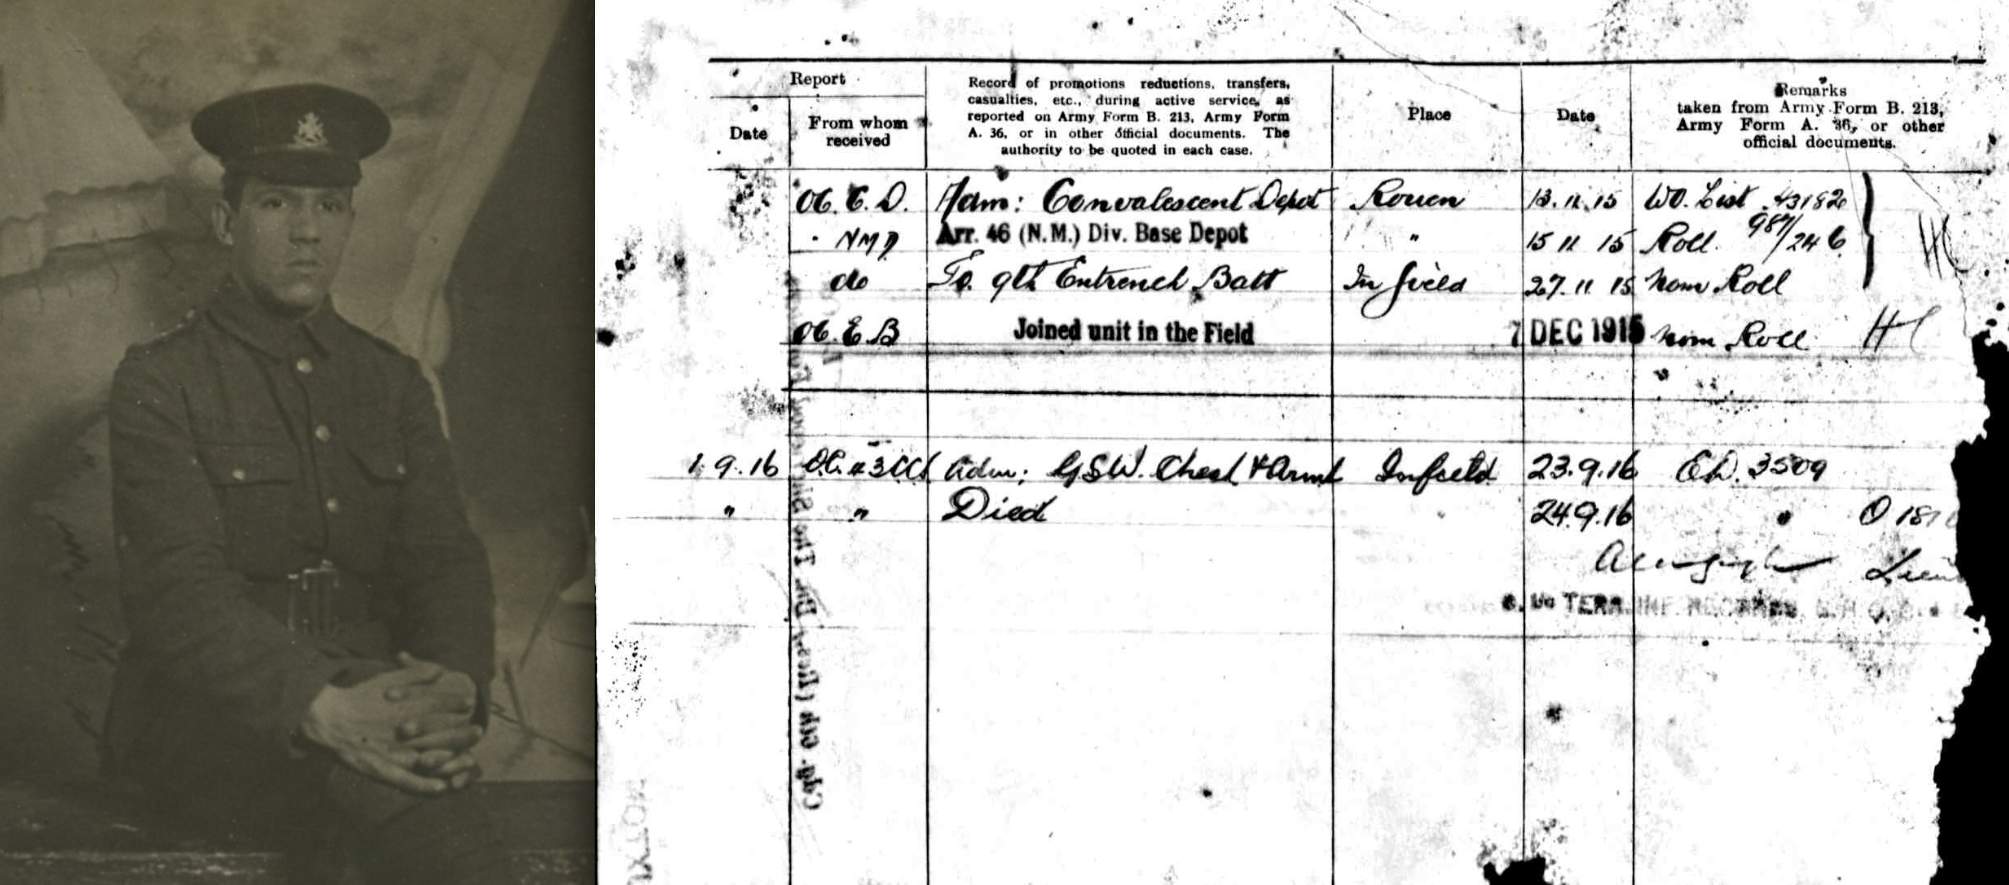 Report
Date
From whom
received
Record of promotions reductions, transfers,
casualties, etc., during active service, as
reported on Army Form B. 213, Army Form
A. 36, or in other official documents. The
authority to be quoted in each case.
Place
Date
Remarks
taken from Army Form B. 213,
Army Form A. 36, or other
official documents.
Adm: Convalescent Depot Rouen 13.11.15 WO. List 43182
Arr. 46 (N.M.) Div. Base Depot " 15 11 15 Roll 987/246
do To 9th Entrench Batt In field 27.11 15 Nom Roll
Joined unit in the Field 7 DEC 1915 Nom Roll
9.16 Adm: GSW. Chest & Infield 23.9.16 3509
" " Died 24.9.16
TERR. INF. RECORDS